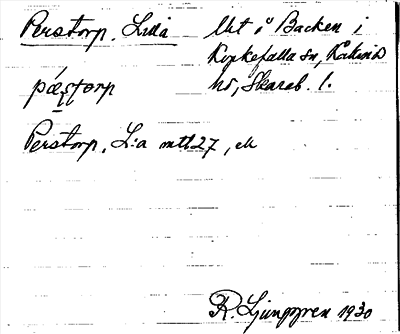 Perstorp, Lilla Ut i Backen i
Kyrkefalla sn, Kåkinds
pæștorp hd, Skarab. l.
Perstorp, L:a mtl 27, ek
R. Ljunggren 1930